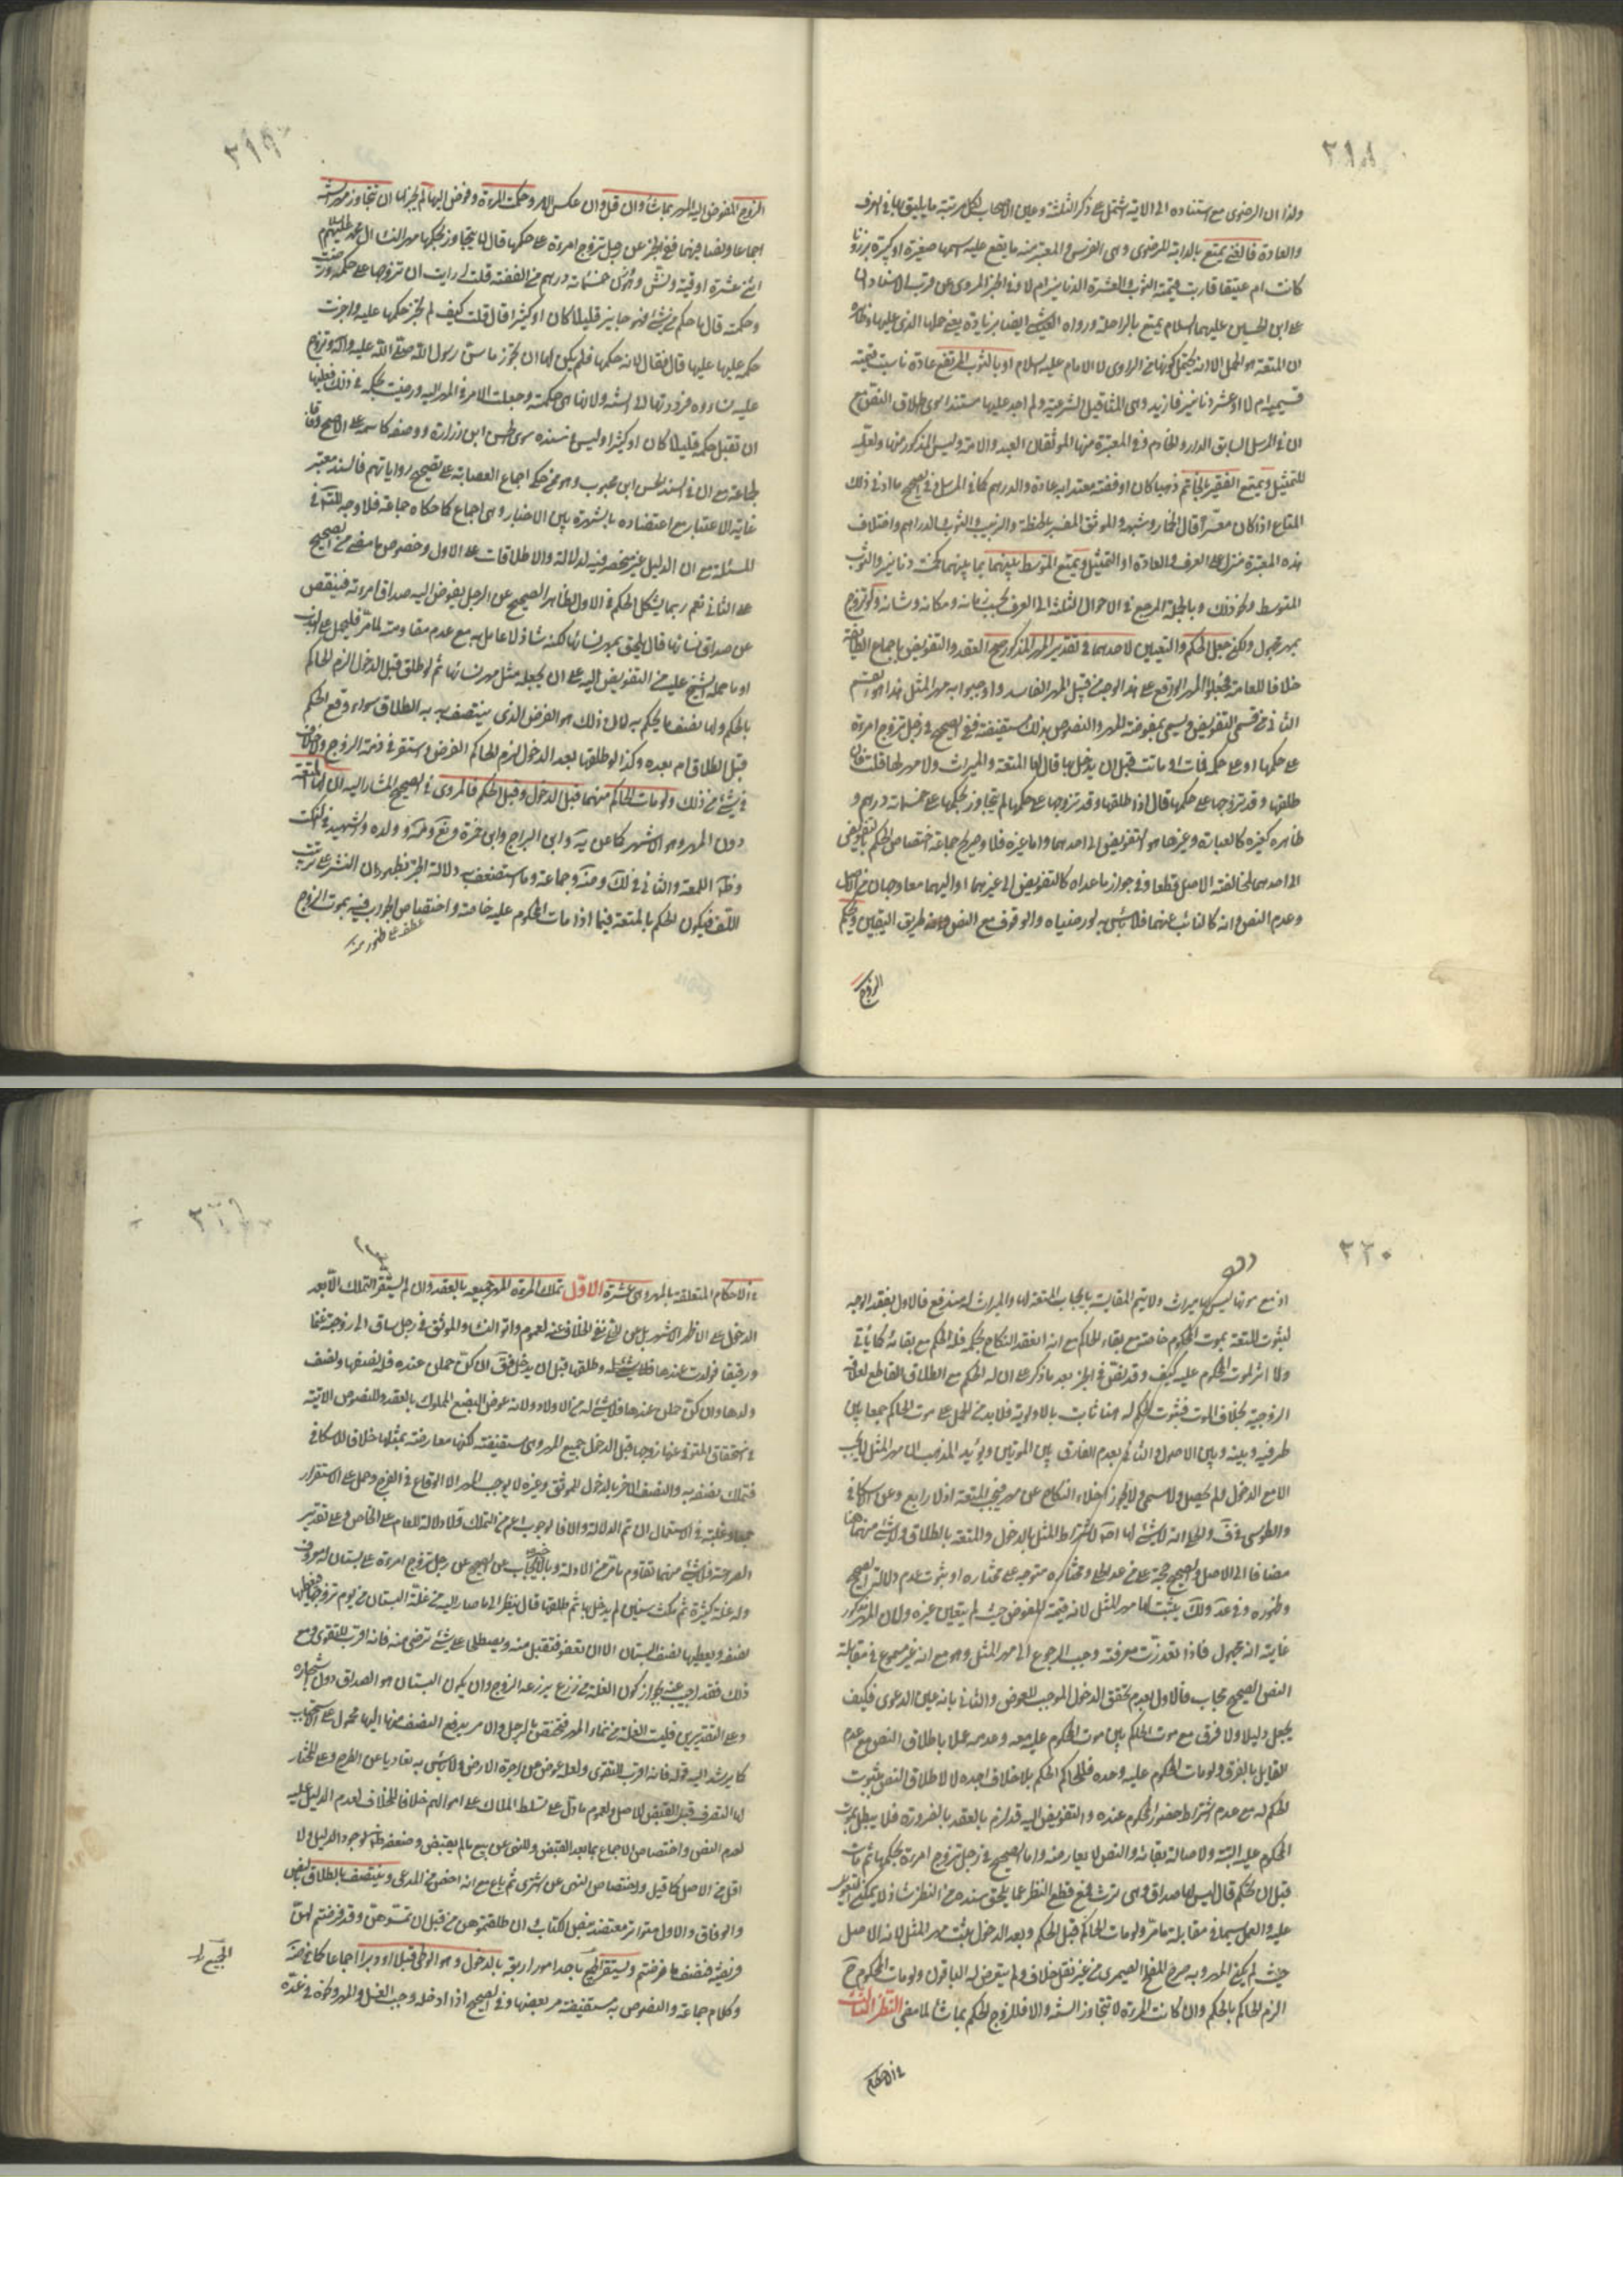 ٢١٨
ولذا ان الرضوي مع استناده الى الاية اشتمل على ذكر الثلثة وعين الاصحاب لكل مرتبة ما يليق بها في العرف
والعادة فالغني يمتع بالدابة للرضوي وهي الفرس والمعتبر منه ما يقع عليه اسمها صغيرة او كبيرة برذونا
كانت ام عتيقا قاربت قيمته الثوب والعشرة الدنانير ام لا وفي الخبر المروي عن قرب الاسناد ان
على بن الحسين عليهما السلام يمتع بالراحلة ورواه الشيخ ايضا بزيادة يعني حملها الذي عليها وظاهره
ان المتعة هو الحمل الا انه يحتمل كونها من الراوي لا الامام عليه السلام او بالثوب المرتفع عادة ناسبت قيمته
قسيميه ام لا او عشر دنانير فازيد وهي المثاقيل الشرعية ولم اجد عليها مستندا سوى اطلاق النص مع
ان في المرسل السابق الدار والخادم وفي المعتبرة منها الموثقان العبد والامة وليس المذكور منها ولعله
للتمثيل ويمتع الفقير بالخاتم ذهبا كان او فضة معتد به عادة والدرهم كما في المرسل وفي الصحيح ما ادنى ذلك
المتاع اذا كان معسرا قال الخمار وشبهه والموثق المفسر بالحنطة والزبيب والثوب والدراهم واختلاف
هذه المعتبرة منزل على العرف والعادة او التمثيل ويمتع المتوسط بينهما بما بينهما كخمسة دنانير والثوب
المتوسط ونحو ذلك وبالجملة المرجع في الاحوال الثلثة الى العرف بحسب زمانه ومكانه وشانه ولو تزوج
بمهر مجهول ولكن جعل الحكم والتعيين لاحدهما في تقدير المهر المذكور صح العقد والتفويض باجماع الطائفة
خلافا للعامة فجعلوا المهر الواقع على هذا الوجه من قبيل المهر الفاسد واوجبوا به مهر المثل وهذا هو القسم
الثاني من قسمي التفويض ويسمى بمفوضة المهر والنصوص بذلك مستفيضة ففي الصحيح في رجل تزوج امرءة
على حكمها او على حكمه فمات او ماتت قبل ان يدخل بها قال لها المتعة والميراث ولا مهر لها قلت فان
طلقها وقد تزوجها على حكمها قال اذا طلقها وقد تزوجها على حكمها لم يتجاوز بحكمها على خمسمائة درهم و
ظاهره كغيره كالعبارة وغيرها هو التفويض الى احدهما واما غيره فلا وصريح جماعة اختصاص الحكم بالتفويض
الى احدهما لمخالفته الاصل قطعا وفي جواز ما عداه كالتفويض الى غيرهما او اليهما معا وجهان من الاصل
وعدم النص وانه كالنائب عنهما فلا باس به لو رضياه والوقوف مع النص وعنه طريق اليقين ويحكم
الزوج
٢١٩
الزوج المفوض اليه المهر بما شاء وان قل وان عكس الامر وحكمت المرءة وفوض اليها لم يجز لها ان تتجاوز مهر السنة
اجماعا ونصا فيهما ففي الخبر عن رجل تزوج امرءة على حكمها قال لا يتجاوز بحكمها مهر نساء ال محمد عليهم السلام
اثني عشرة اوقية ونش وهو وزن خمسمائة درهم من الفضة قلت ارايت ان تزوجها على حكمه ورضيت
وحكمه قال ما حكم من شئ فهو جايز قليلا كان او كثيرا قال قلت كيف لم تجز حكمها عليه واجزت
حكمه عليها قال فقال لانه حكمها فلم يكن لها ان تجوز ما سن رسول الله صلى الله عليه واله وتزوج
عليه نساءه فرددتها الى السنة ولانها هي حكمته وجعلت الامر في المهر اليه ورضيت بحكمه في ذلك فعليها
ان تقبل حكمه قليلا كان او كثيرا وليس في سنده سوى الحسن ابن زرارة ووصفه كاسمه على الاصح وفاقا
لجماعة مع ان في السند الحسن ابن محبوب وهو ممن حكي اجماع العصابة على تصحيح رواياتهم فالسند معتبر
غاية الاعتبار مع اعتضاده بالشهرة بين الاخبار وهي اجماع كما حكاه جماعة فلا وجه للتامل في
المسئلة مع ان الدليل غير منحصر فيه لدلالة والاطلاقات على الاول وخصوص ما مضى من الصحيح
على الثاني نعم ربما يشكل الحكم في الاول لظاهر الصحيح عن الرجل يفوض اليه صداق امرءته فينقص
عن صداق نسائها قال يلحق بمهر نسائها لكنه شاذ لا عامل به مع عدم مقاومته لما مر فليحمل على الندب
او ما حمله الشيخ عليه من التفويض اليه على ان يجعله مثل مهر نسائها ثم لو طلق قبل الدخول الزم الحاكم
بالحكم ولها نصف ما يحكم به لان ذلك هو الفرض الذي ينتصف به بالطلاق سواء وقع الحكم
قبل الطلاق ام بعده وكذا لو طلقها بعد الدخول لزم الحاكم الفرض واستقر في ذمة الزوج ولا خلاف
في شئ من ذلك ولو مات الحاكم منهما قبل الدخول وقبل الحكم فالمروي في الصحيح المشار اليه ان لها المتعة
دون المهر وهو الاشهر كما عن يه وابن البراج وابن حمزة
وظاهر اللمعة والثاني في لك وضه وجماعة وما استضعف به دلالة الخبر بظهور ان النشر على ترتيب
اللف فيكون الحكم بالمتعة فيما اذا مات المحكوم عليه خاصة واختصاص الجواب فيه بموت الزوج
عطف على ظهور
٢٢٠
اذ مع موتها ليس لها ميراث ولا يتم المقايسة بايجاب المتعة لها والميراث له مندفع فالاول بفقد الوجه
لثبوت المتعة بموت المحكوم خاصة مع بقاء الحاكم مع انه انعقد النكاح بحكمه فله الحكم مع بقائه كما ياتي
ولا اثر لموت المحكوم عليه كيف وقد نص في الخبر بعد ما ذكر على ان له الحكم مع الطلاق القاطع لعلاقة
الزوجية بخلاف الموت فثبوت الحكم له هنا ثابت بالاولوية فلا بد من الحمل على موت الحاكم جمعا بين
طرفيه وبينه وبين الاصول والثاني بعدم الفارق بين الموتين ويؤيد المذهب ان مهر المثل لا يجب
الا مع الدخول ولم يحصل ولا مسمى ولا يجوز اخلاء النكاح عن مهر فيجب المتعة اذ لا رابع وعن الاسكافي
والطوسي في ف والحلي انه لا شئ لها اصلا لاشتراط المثل بالدخول والمتعة بالطلاق ولا شئ منهما هنا
مضافا الى الاصل والصحيح حجة على من عدا الحلي
وظهوره وفي عد ولك يثبت لها مهر المثل لانه قيمة المعوض حيث لم يتعين غيره ولان المهر مذكور
غايته انه مجهول فاذا تعذرت معرفته وجب الرجوع الى مهر المثل وهو مع انه غير مسموع في مقابلة
النص الصحيح مجاب فالاول بعدم تحقق الدخول الموجب للعوض والثاني بانه عين الدعوى فكيف
يجعل دليلا ولا فرق مع موت الحاكم بين موت المحكوم عليه معه وعدمه عملا باطلاق النص مع عدم
القائل بالفرق ولو مات المحكوم عليه وحده فللحاكم الحكم بلا خلاف اجده لا لاطلاق النص بثبوت
الحكم له مع عدم اشتراط حضور المحكوم عنده والتفويض اليه قد لزم بالعقد بالضرورة فلا يبطل بموت
المحكوم عليه البتة ولاصالة بقائه والنص لا يعارضه واما الصحيح في رجل تزوج امرءة بحكمها ثم مات
قبل ان تحكم قال ليس لها صداق وهي ترث فمع قطع النظر عما يلحق بسنده من النظر شاذ لا يمكن التعويل
عليه والعمل سيما في مقابلة ما مر ولو مات الحاكم قبل الحكم وبعد الدخول يثبت مهر المثل لانه الاصل
حيث لم يكن المهر وبه صرح المفلح الصيمري من غير نقل خلاف ولم يتعرض له الباقون ولو مات المحكوم
الزم الحاكم بالحكم وان كانت المرءة لا تتجاوز السنة والا فللزوج الحكم بما شاء لما مضى النظر الثالث
في الاحكام
٢٢١
في الاحكام المتعلقة بالمهر وهي عشرة الاول تملك المرءة المهر جميعه بالعقد وان لم يستقر التملك الا بعد
الدخول على الاظهر الاشهر بل عن الحلي نفي الخلاف عنه لعموم واتوا النساء والموثق في رجل ساق الى زوجته غنما
ورقيقا فولدت عندها وطلقها قبل ان يدخل فقال ان كن حملن عنده فله نصفها ونصف
ولدها وان كن حملن عندها فلا شئ له من الاولاد ولانه عوض البضع المملوك بالعقد وللنصوص الاتية
في استحقاق المتوفى عنها زوجها قبل الدخول جميع المهر وهي مستفيضة لكنها معارضة بمثلها خلافا للاسكافي
فتملك نصفه به والنصف الاخر بالدخول للموثق وغيره لا يوجب المهر الا الوقاع في الفرج وحمل على الاستقرار
جمعا وغلبة في الاستعمال ان تم الدلالة والا فالوجوب اعم من التملك فلا دلالة للعام على الخاص وعلى تقدير
الصراحة فلا شئ منهما تقاوم ما مر من الادلة عن الصحيح عن رجل تزوج امرءة على بستان له معروف
وله غلة كثيرة ثم مكث سنين لم يدخل بها ثم طلقها قال ينظر الى ما صار اليه من غلة البستان من يوم تزوجها فيعطيها
نصفه ويعطيها نصف البستان الا ان تعفو فتقبل منه ويصطلحا على شئ ترضى منه فانه اقرب للتقوى ومع
ذلك فقد اجيب عنه بجواز كون الغلة من زرع يزرعه الزوج وان يكون البستان هو الصداق دون اشجاره
وعلى التقديرين فليست الغلة من نماء المهر فتختص بالرجل والامر بدفع النصف منها اليها محمول على الاستحباب
كما يرشد اليه قوله فانه اقرب للتقوى ولعله عوض عن اجرة الارض ولا باس به تفاديا عن الطرح وعلى المختار
لها التصرف قبل القبض للاصل ولعموم ما دل على تسلط الملاك على اموالهم خلافا للخلاف لعدم الدليل عليه
لعدم النص واختصاص الاجماع بما بعد القبض وللنهي عن بيع ما لم يقبض وضعفه ظاهر لوجود الدليل ولا
اقل من الاصل كما قيل واختصاص النهي عن اشترى ثم باع مع انه اخص من المدعى وينتصف بالطلاق بالنص
والوفاق والاول متواتر معتضد بنص الكتاب ان طلقتموهن من قبل ان تمسوهن وقد فرضتم لهن
فريضة فنصف ما فرضتم ويستقر الجميع باحد امور اربعة بالدخول وهو الوطئ قبلا او دبرا اجماعا كما في ضه
وكلام جماعة والنصوص به مستفيضة مر بعضها وفي الصحيح اذا ادخله وجب الغسل والمهر ونحوه في عدة